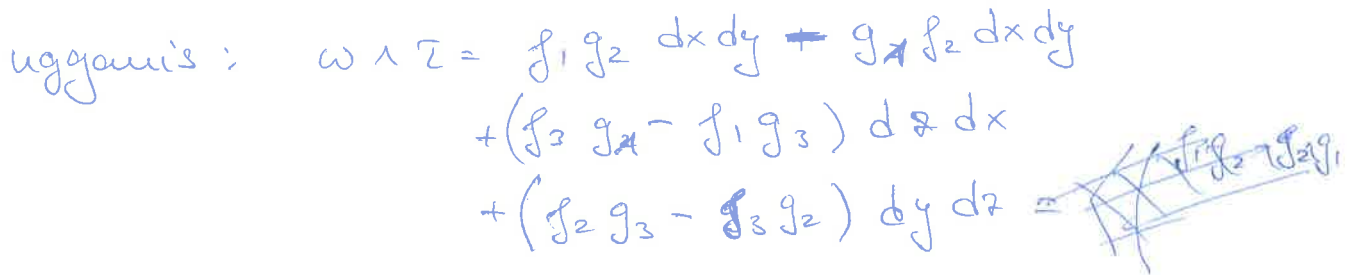 ugyanis : ω ∧ τ = f₁ g₂ dx dy - g₁ f₂ dx dy
+ (f₃ g₁ - f₁ g₃) dz dx
+ (f₂ g₃ - f₃ g₂) dy dz =